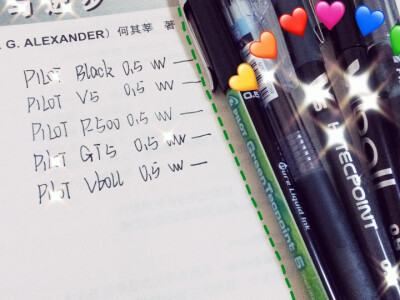 G. ALEXANDER) 何其莘 著
PILOT Black 0.5 mm —
PILOT V5 0.5 mm —
PILOT P500 0.5 mm —
PILOT GT5 0.5 mm —
PILOT Vboll 0.5 mm —
PILOT GreenTecpoint 5
Pure Liquid Ink
HI-TECPOINT
ball